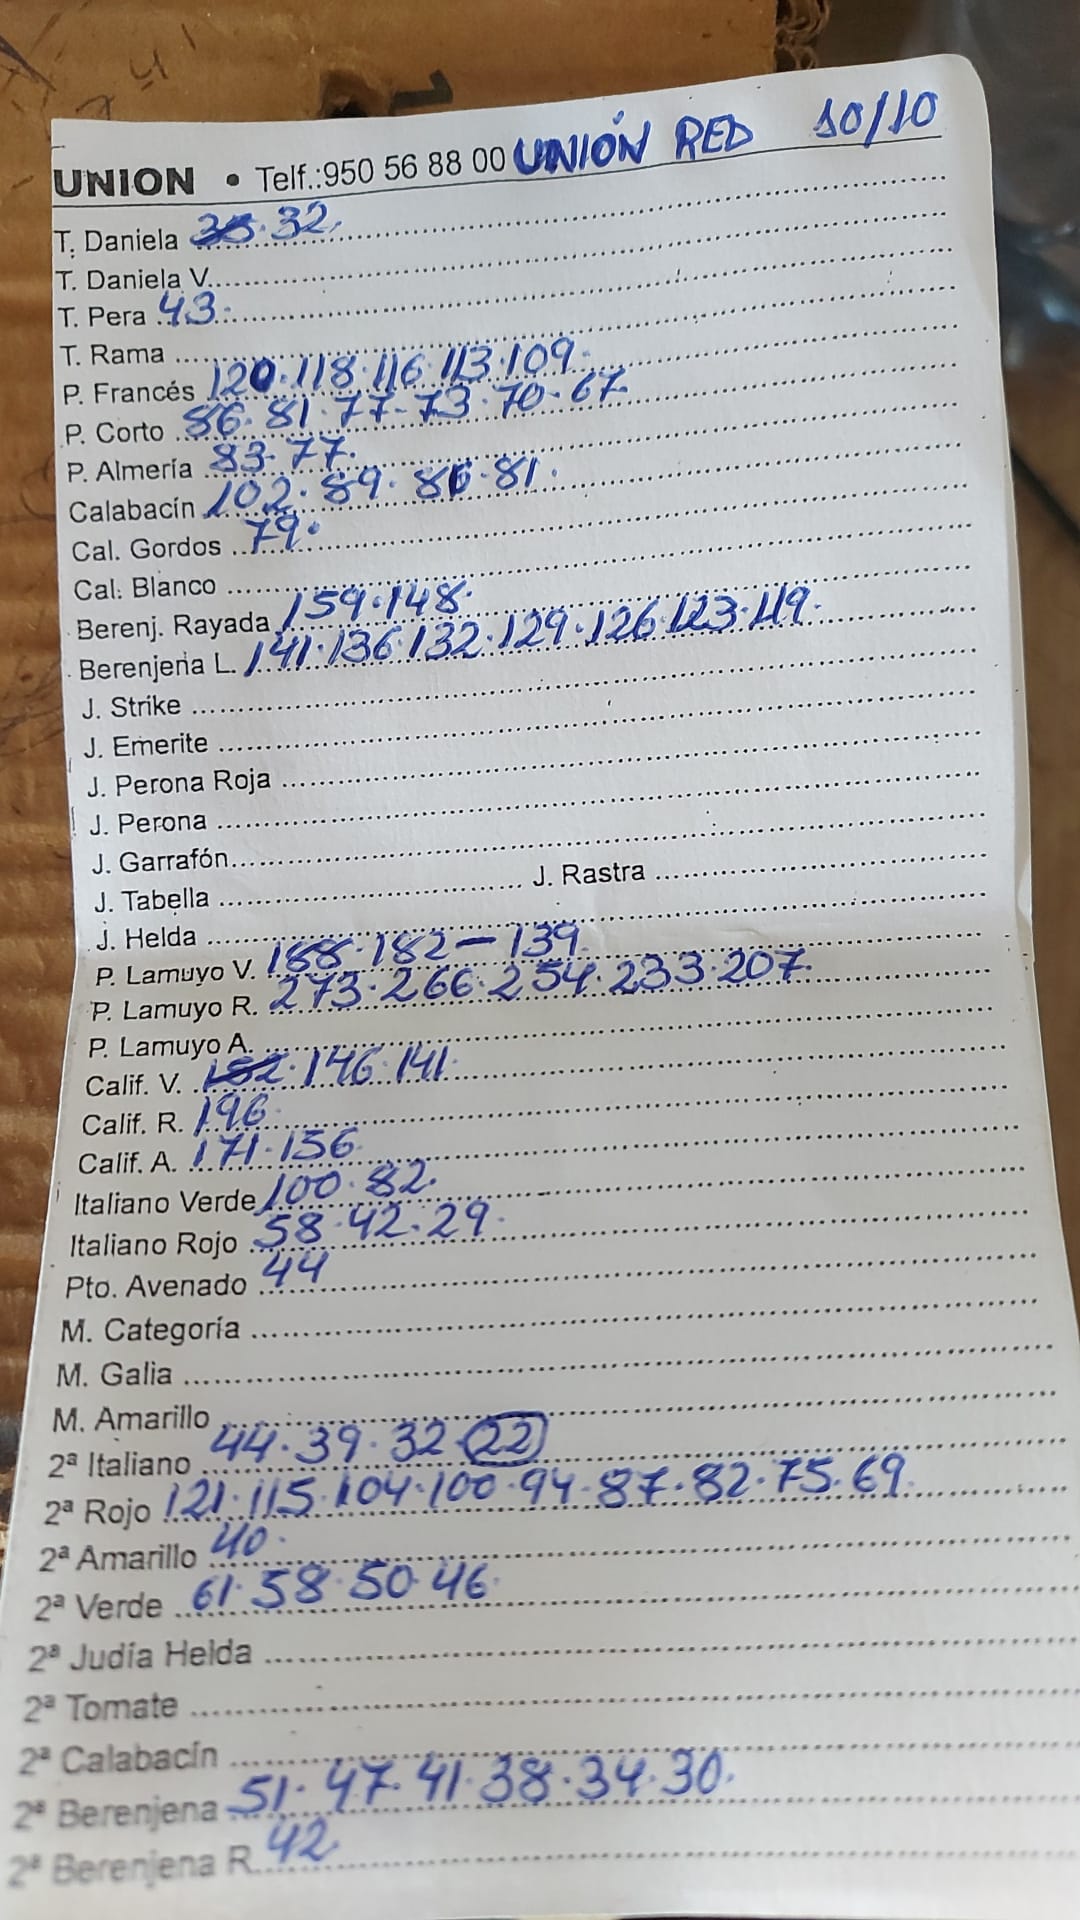 UNION • Telf.:950 56 88 00 UNIÓN RED 10/10
T. Daniela 32.
T. Daniela V.
T. Pera 43.
T. Rama
P. Francés 120.118.116.113.109.
P. Corto 86.81.77-73.70-67
P. Almería 83-77.
Calabacín 102.89.86.81.
Cal. Gordos 79.
Cal. Blanco
Berenj. Rayada 159.148.
Berenjena L. 141.136.132.129.126.123.119.
J. Strike
J. Emerite
J. Perona Roja
J. Perona
J. Garrafón
J. Tabella J. Rastra
J. Helda
P. Lamuyo V. 188.182-139
P. Lamuyo R. 273.266.254.233.207.
P. Lamuyo A.
Calif. V. 152.146.141.
Calif. R. 196
Calif. A. 171.156
Italiano Verde 100.82.
Italiano Rojo 58.42.29.
Pto. Avenado 44
M. Categoría
M. Galia
M. Amarillo
2ª Italiano 44.39.32.22
2ª Rojo 121.115.104.100.94-87.82.75.69
2ª Amarillo 40.
2ª Verde 61.58.50.46
2ª Judía Helda
2ª Tomate
2ª Calabacín
2ª Berenjena 51.47.41.38.34.30.
2ª Berenjena R. 42.